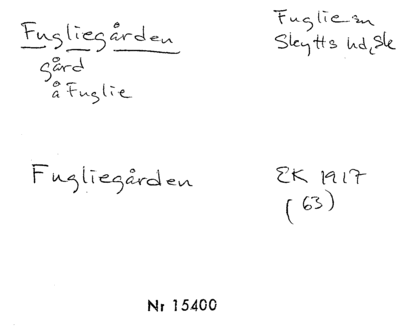 Fugliegården
gård
å Fuglie
Fuglie sn
Skytts hd, Sk
Fugliegården
EK 1917
(63)
Nr 15400